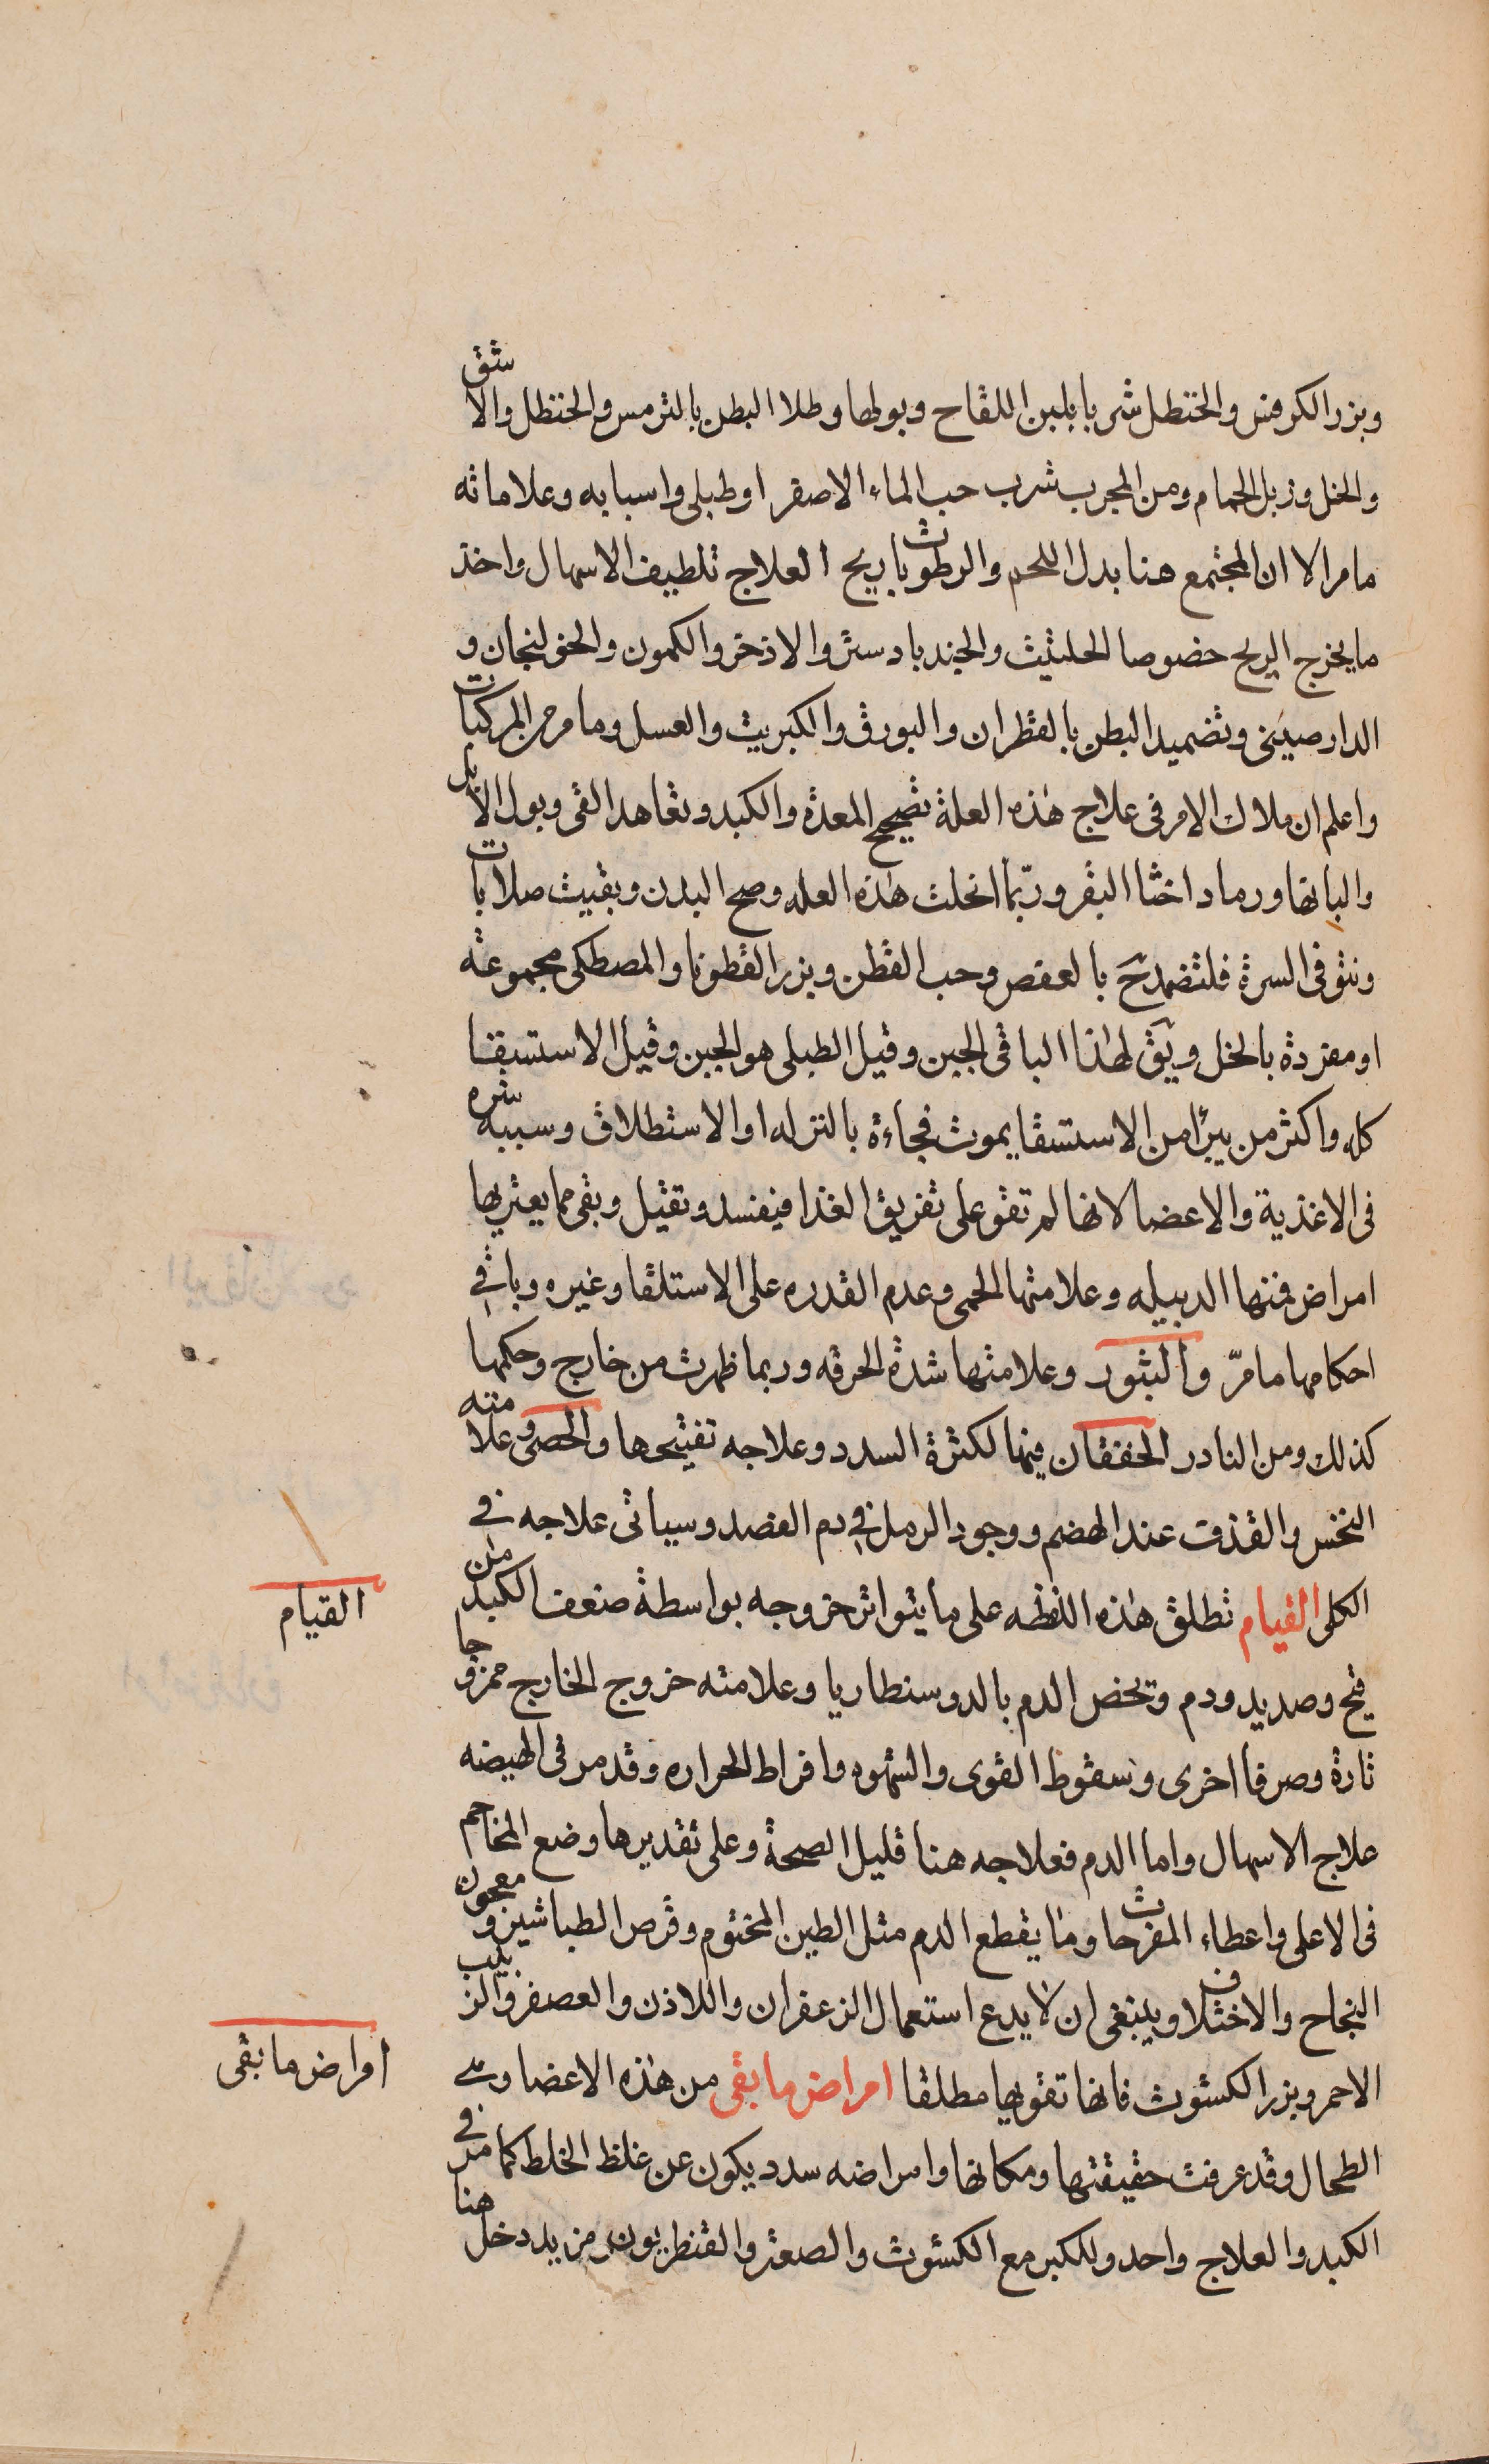 وبزر الكرفس والحنظل شربا بلبن اللقاح وبولها وطلا البطن بالترمس والحنظل والاشق
والخل وزبل الحمام ومن المجرب شرب حب الماء الاصفر اوطبلى واسبابه وعلاماته
مامر الا ان المجتمع هنا بدل اللحم والرطوبات ريح العلاج تلطيف الاسهال واخذ
مايخرج الريح خصوصا الحلتيت والجندبادستر والاذخر والكمون والخولنجان و
الدارصينى وتضميد البطن بالقطران والبورق والكبريت والعسل ومامر من المركبات
واعلم ان ملاك الامر فى علاج هذه العلة تصحيح المعدة والكبد وتعاهد القى وبول الابل
والبانها ورماد اخثا البقر وربّما انحلت هذه العله وصح البدن وبقيت صلابات
ونتو فى السرة فلتضمد ح بالعفص وحب القطن وبزر القطونا والمصطكى مجموعة
اومفردة بالخل ويق لهذا الباقى الجبن وقيل الطبلى هو الجبن وقيل الاستسقا
كله واكثر من يبرأ من الاستسقا يموت فجاءة بالنزله اوالاستطلاق وسببه شره
فى الاغذية والاعضا لانها لم تقو على تفريق الغذا فيفسد وتقيل وبقى مما يعتريها
امراض فمنها الدبيله وعلامتها الحمى وعدم القدره على الاستلقا وغيره وباقى
احكامها مامرّ والبثور وعلامتها شدة الحرقه وربما ظهرت من خارج وحكمها
كذلك ومن النادر الخفقان فيها لكثرة السدد وعلاجه تفتيحها والحصى وعلامته
النخس والقذف عند الهضم ووجود الرمل فى دم الفصد وسياتى علاجه فى
الكلى القيام تطلق هذه اللفظه على مايتواتر خروجه بواسطة ضعف الكبد من
قيح وصديد ودم وتخص الدم بالدوسنطاريا وعلامته خروج الخارج ممزوجا
تارة وصرفا اخرى وسقوط القوى والشهوه وافراط الحراره وقد مر فى الهيضه
علاج الاسهال واما الدم فعلاجه هنا قليل الصحة وعلى تقديرها وضع المحاجم
فى الاعلى واعطاء المفرحات وما يقطع الدم مثل الطين المختوم وقرص الطباشير ومعجون
النجاح والاختلاف وينبغى ان لا يدع استعمال الزعفران واللاذن والعصفر والزبيب
الاحمر وبزر الكشوت فانها تقويها مطلقا امراض ما بقى من هذه الاعضا وهى
الطحال وقد عرفت حقيقتها ومكانها وامراضه سدد يكون عن غلظ الخلط كما مر فى
الكبد والعلاج واحد وللكبر مع الكشوت والصعتر والقنطريون مزيد دخل هنا
القيام
امراض ما بقى